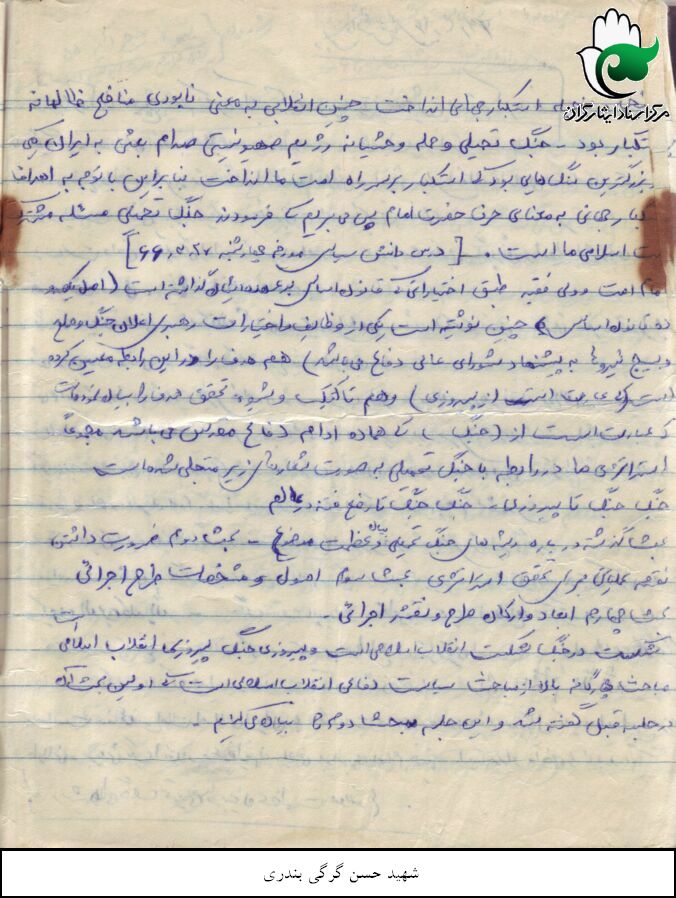 مرکز اسناد ایثارگران
استکبار جهانی انداخت چنین انقلابی به معنی نابودی منافع ظالمانه
بود - جنگ تحمیلی و حمله وحشیانه رژیم صهیونیستی صدام بعثی به ایران یکی
بزرگترین بود که استکبار بر سر راه امت ما انداخت بنابراین با توجه به اهداف
جهانی به معنای حرف حضرت امام پی می بریم که فرمودند جنگ تحمیلی مسئله
اسلامی ما است . [ درس دانش سیاسی مورخه چهارشنبه ۶۶,۳,۲۷ ]
امام امت و ولی فقیه طبق اختیاراتی که قانون اساسی بر عهده ایشان گذاشته است ( اصل یکصد
ده قانون اساسی ) چنین نوشته است یکی از وظایف و اختیارات رهبری اعلان جنگ و صلح
و بسیج نیروها به پیشنهاد شورای عالی دفاع می باشد ) هم هدف را در این رابطه معین کرده
است از پیروزی ) و هم تاکتیک و شیوه تحقق هدف را بیان فرمودند
که عبارت است از ( جنگ که همانا ادامه دفاع مقدس می باشد مجموعاً
استراتژی ما در رابطه با جنگ تحمیلی به صورت شعارهای زیر متجلی شده است
جنگ جنگ تا پیروزی - جنگ جنگ تا رفع فتنه در عالم
بحث گذشته درباره ریشه های جنگ تحمیلی و عظمت موضوع - بحث دوم ضرورت داشتن
نقشه عملیاتی برای تحقق استراتژی بحث سوم اصول و مشخصات طرح اجرائی
بحث چهارم ابعاد و ارکان طرح و نقشه اجرائی .
شکست در جنگ شکست انقلاب اسلامی است و پیروزی جنگ پیروزی انقلاب اسلامی است
مباحث چهارگانه بالا از مباحث سیاست دفاعی انقلاب اسلامی است که اولین بحث آن
در جلسه قبل گفته شد و این جلسه بحث دوم را بیان می کنیم .
شهید حسن گرگی بندری